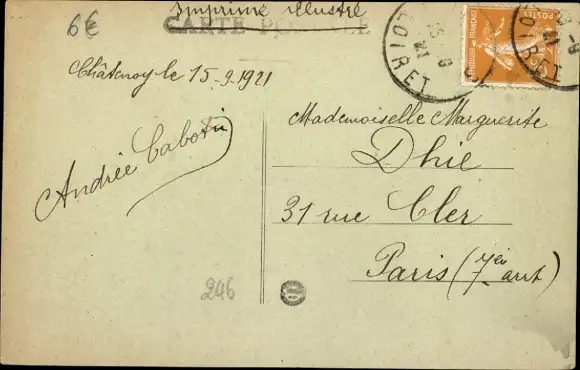 6€
Imprimé illustré
CARTE POSTALE
Châtenoy le 15-9-1921
Andrée Cabotin
Mademoiselle Marguerite
Dhié
31 rue Cler
Paris (7è arrt)
246
LOIRET
21
POSTES
LOIRET
21